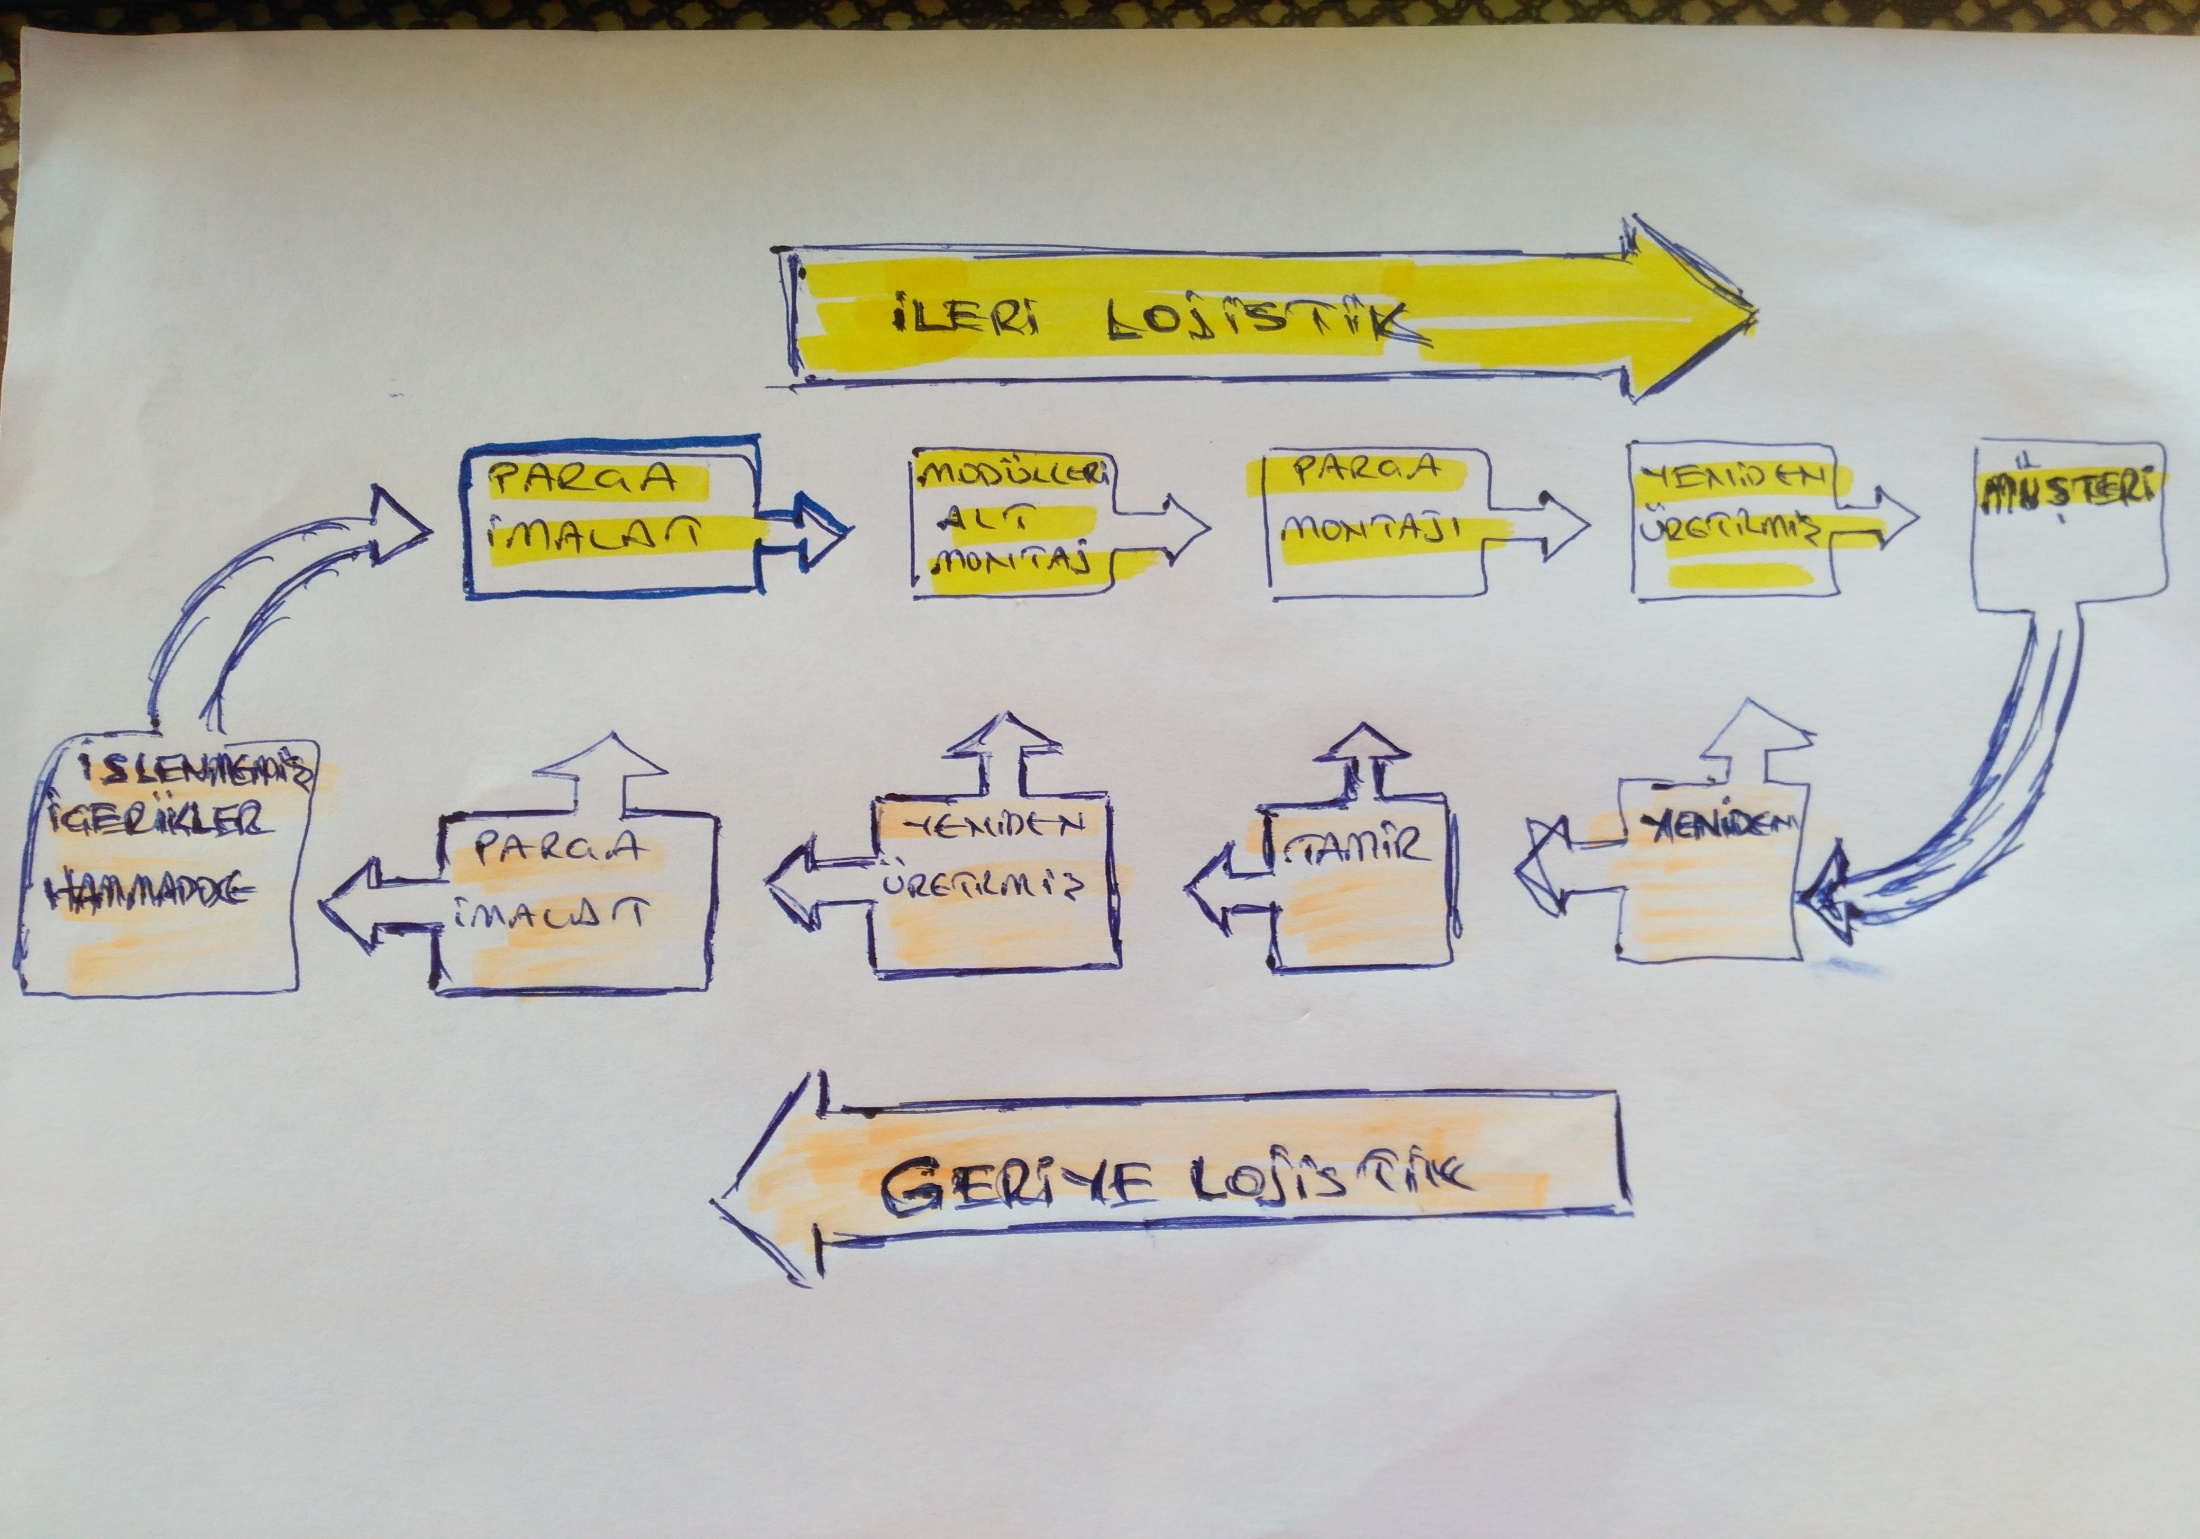 İLERİ LOJİSTİK
PARGA
İMALAT
MODÜLLERİ
ALT
MONTAJ
PARGA
MONTAJI
YENİDEN
ÜRETİLMİŞ
MÜŞTERİ
İSLENMEMİŞ
İGERİKLER
HAMMADDE
PARGA
İMALAT
YENİDEN
ÜRETİLMİŞ
TAMİR
YENİDEN
GERİYE LOJİSTİK